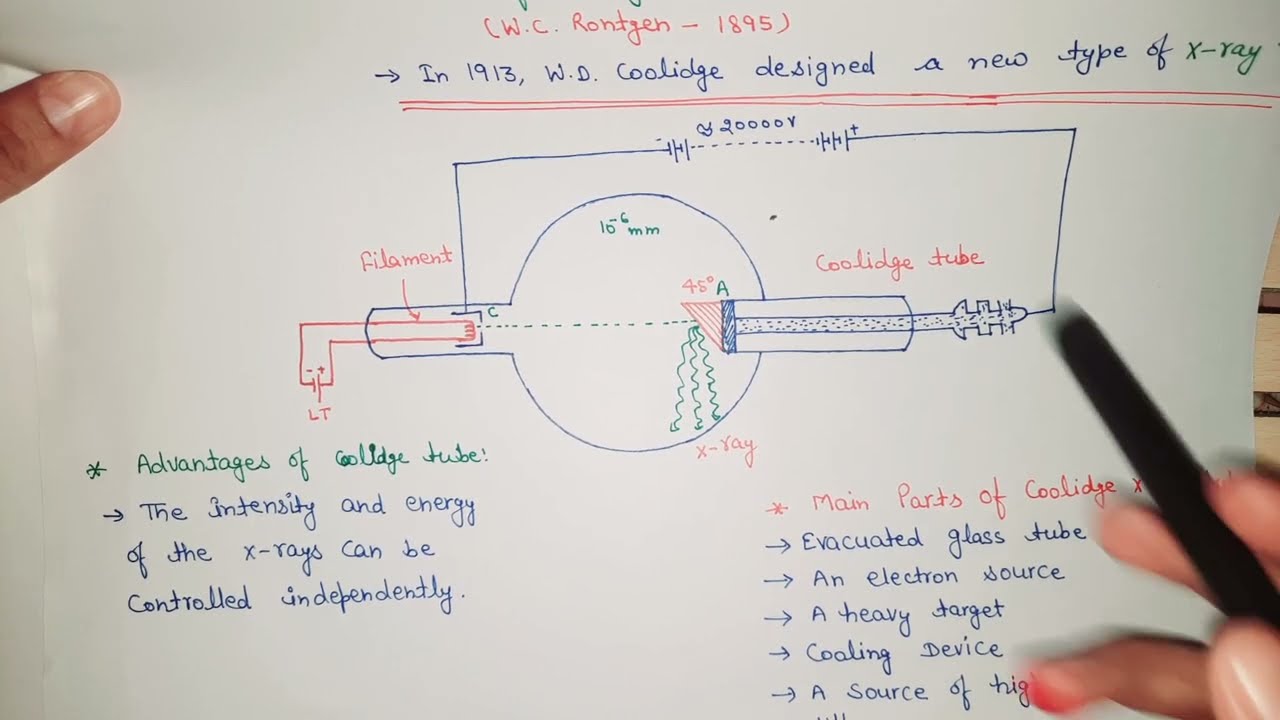 (W.C. Rontgen - 1895)
→ In 1913, W.D. Coolidge designed a new type of x-ray
- ≈ 20000V +
10⁻⁶ mm
Filament
Coolidge tube
45° A
C
- +
LT
x-ray
* Advantages of Coolidge tube:
→ The intensity and energy
of the x-rays can be
controlled independently.
* Main Parts of Coolidge x
→ Evacuated glass tube
→ An electron source
→ A heavy target
→ Cooling Device
→ A source of hig